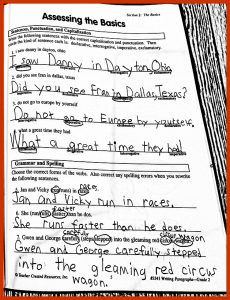 Section 2: The Basics
Assessing the Basics
Sentences, Punctuation, and Capitalization
the following sentences with the correct capitalization and punctuation. Then
the kind of sentence each is: declarative, interrogative, imperative, exclamatory.
1. i saw danny in dayton, ohio
I saw Danny in Dayton, Ohio.
2. did you see fran in dallas, texas
Did you see Fran in Dallas, Texas?
3. do not go to europe by yourself
Do not go to Europe by yourself.
4. what a great time they had
What a great time they had
Grammar and Spelling
Choose the correct forms of the verbs. Also correct any spelling errors when you rewrite
the following sentences.
5. Jan and Vicky (run/runs) in races.
Jan and Vicky run in races.
6. She (run/runs) faster than he does.
She runs faster than he does.
7. Gwen and George carefully (steps/stepped) into the gleaming red circus wagon.
Gwen and George carefully stepped
into the gleaming red circus
wagon.
© Teacher Created Resources, Inc.
Writing Paragraphs—Grade 2